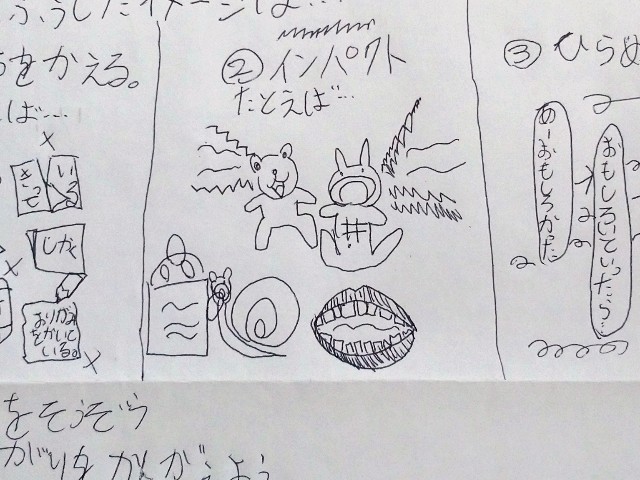 ふうしたイメージは…
をかえる。
ば…
きって
いる
しかく
おりがみ
をかいて
いる。
②インパクト
たとえば…
③ひらめ
あーおもしろかった
おもしろいていったら…
をそうぞう